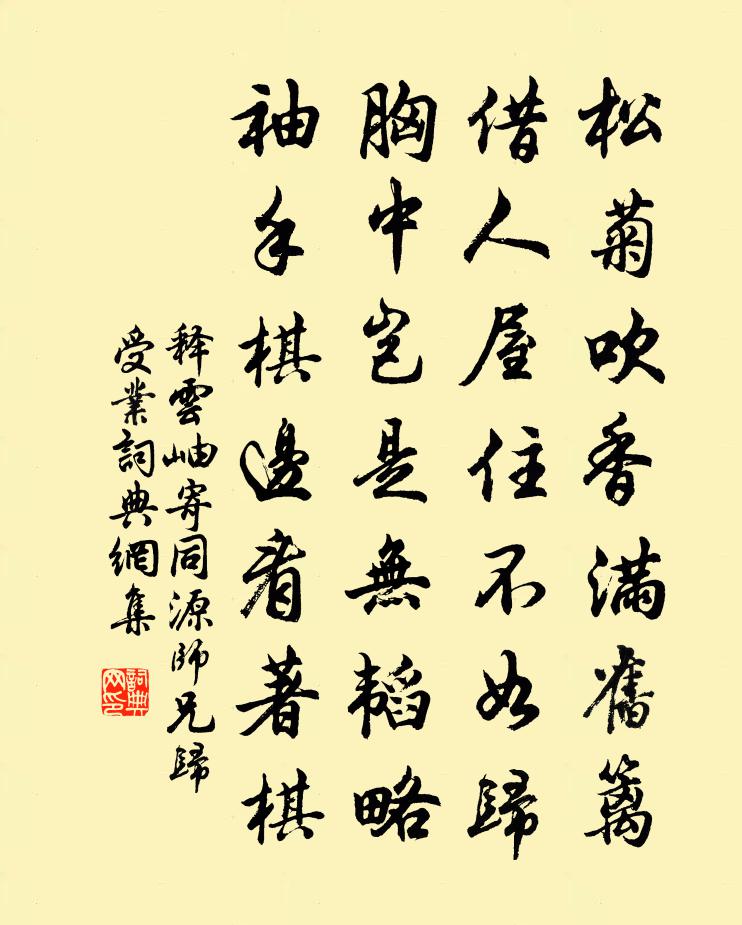 松菊吹香滿舊籬
借人屋住不如歸
胸中豈是無韜略
袖手棋邊看著棋
释雲岫寄同源師兄歸
受業詞典網集
詞典
网印